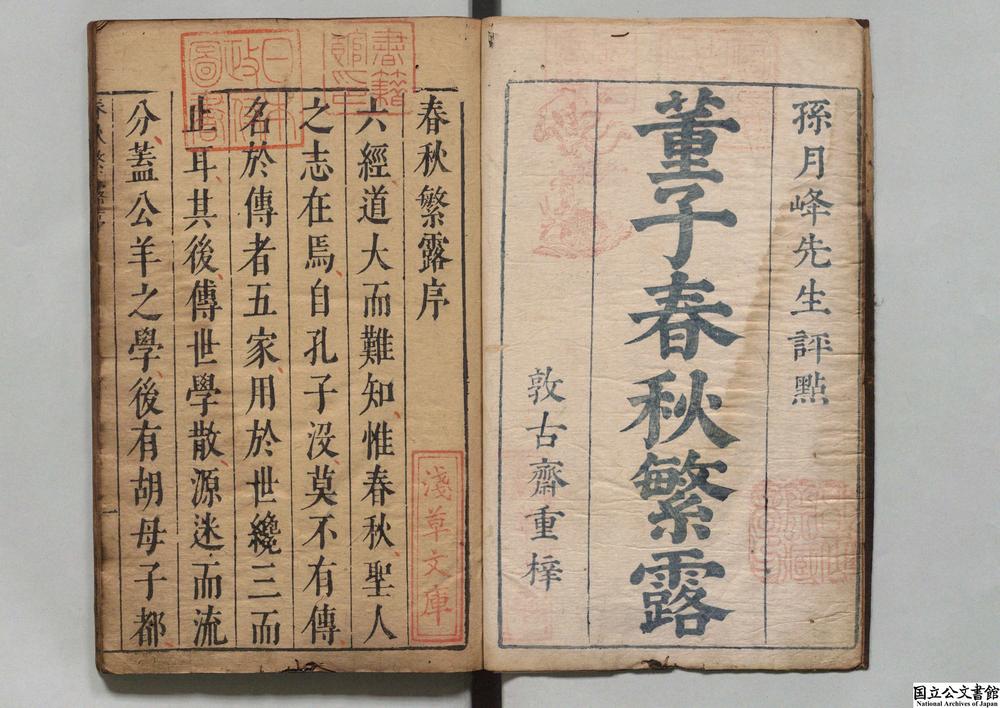 孫月峰先生評點
董子春秋繁露
敦古齋重梓
春秋繁露序
六經道大而難知惟春秋聖人
之志在焉自孔子沒莫不有傳
名於傳者五家用於世纔三而
止耳其後傳世學散源迷而流
分蓋公羊之學後有胡母子都
書籍
館印
日本
政府
圖書
淺草文庫
国立公文書館
National Archives of Japan